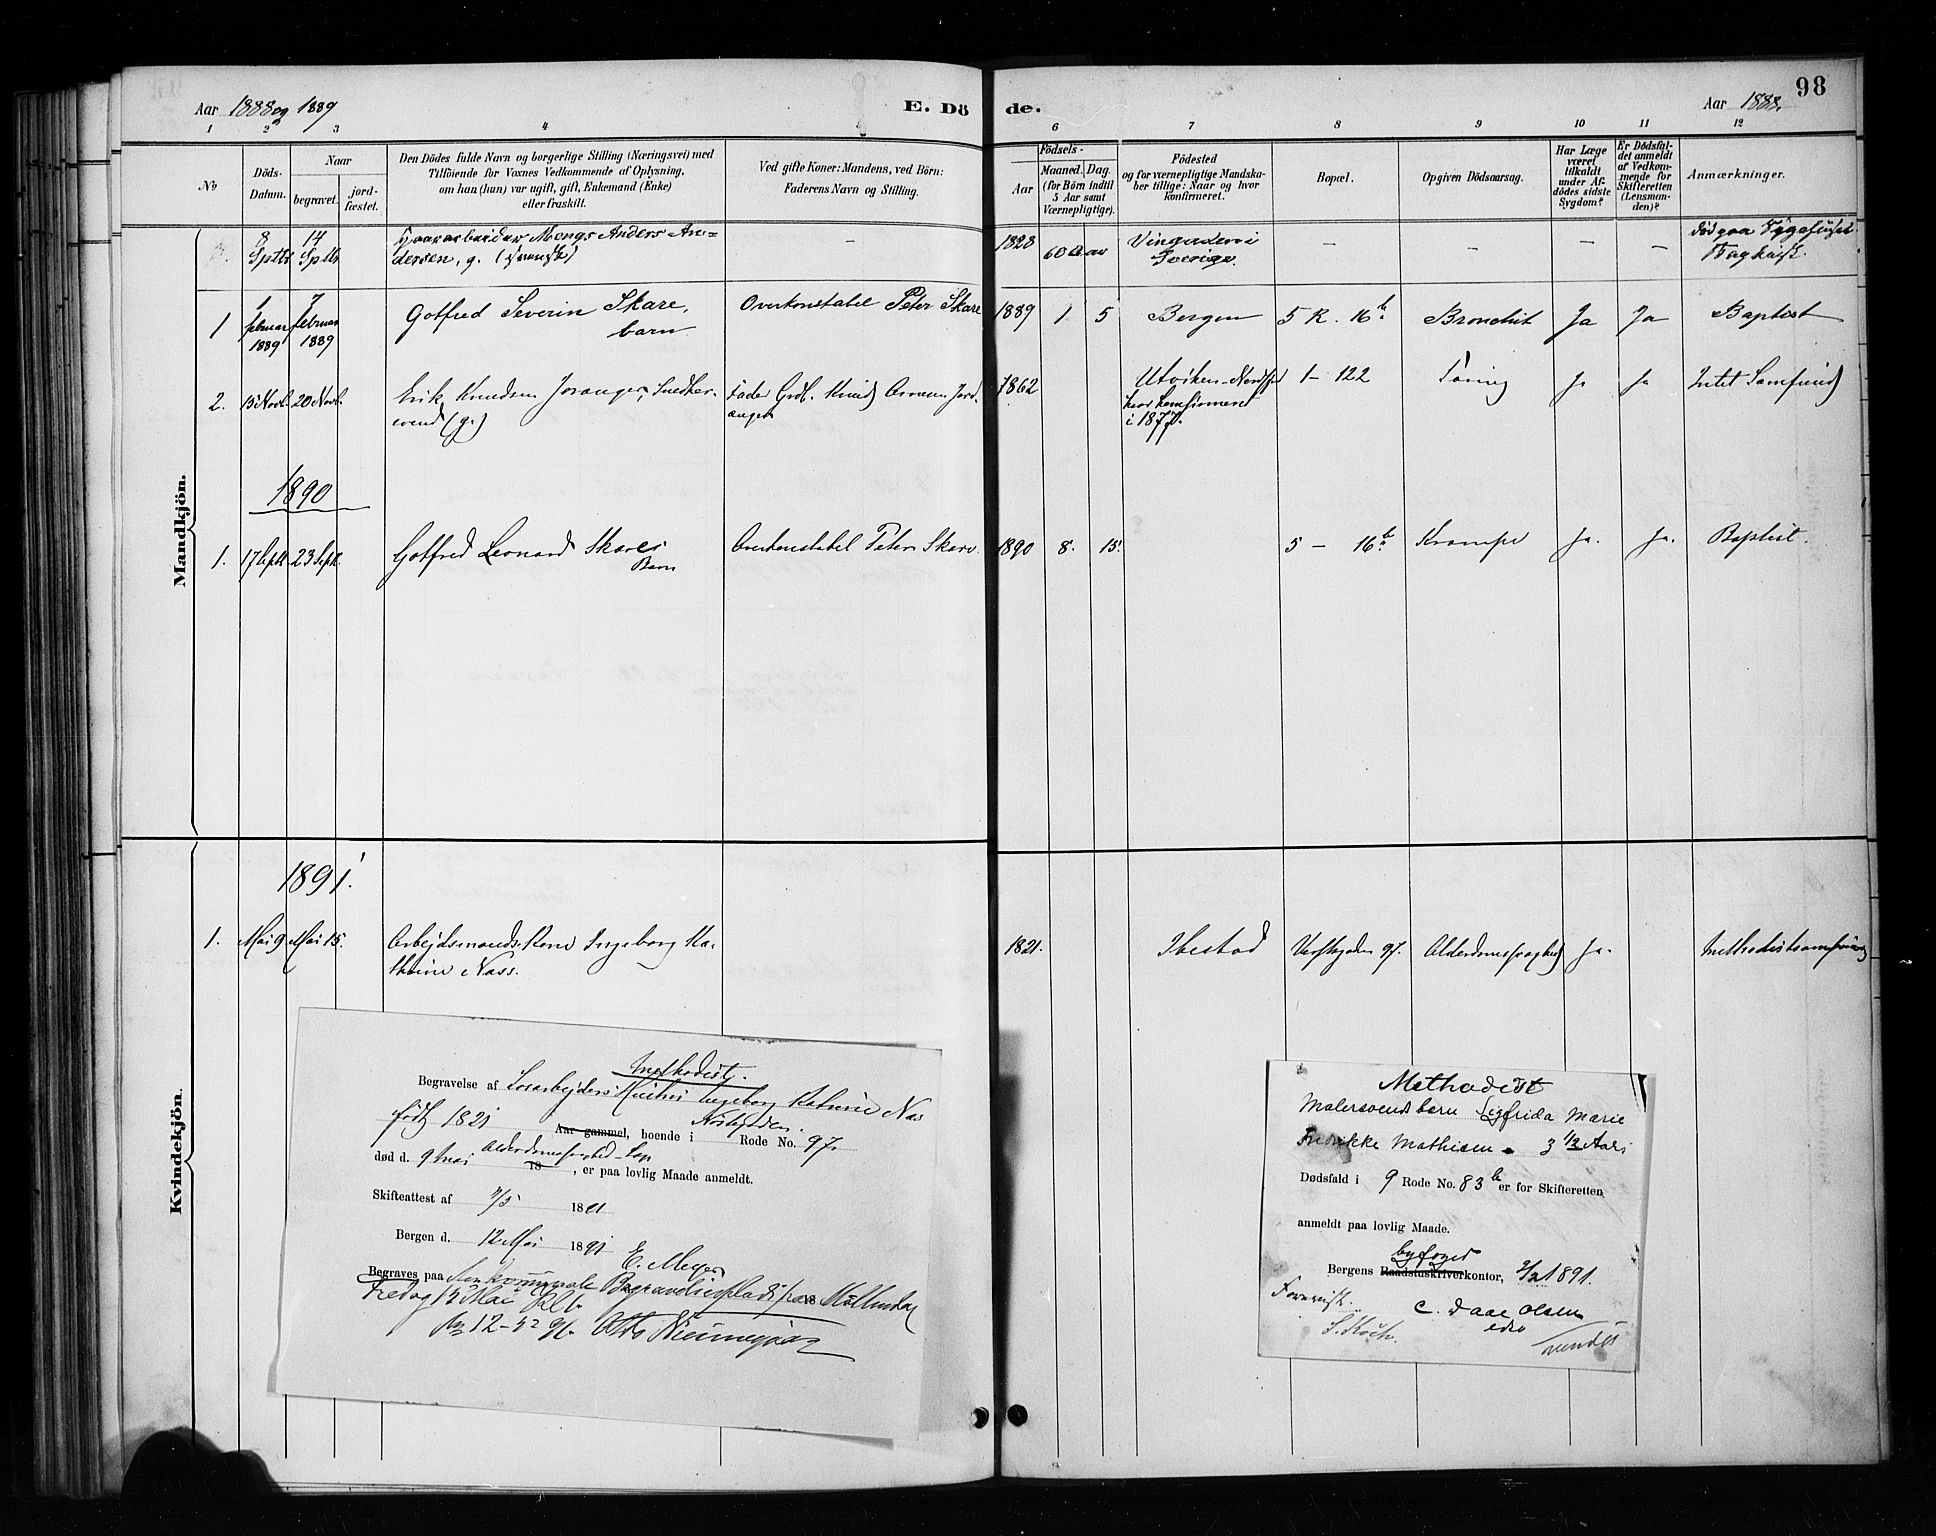 98
Aar 1888 og 1889
E. Dö
de.
Aar 1888.
1 2 3 4
6 7 8 9 10 11 12
No
Döds-
Datum.
Naar
begravet.
jord-
fæstet.
Den Dödes fulde Navn og borgerlige Stilling (Næringsvei) med
Tilföiende for Voxnes Vedkommende af Oplysning,
om han (hun) var ugift, gift, Enkemand (Enke)
eller fraskilt.
Ved gifte Koner: Mandens, ved Börn:
Faderens Navn og Stilling.
Födsels-
Aar
Maaned.
Dag.
(for Börn indtil
5 Aar samt
Værnepligtige).
Födested
og for værnepligtige Mandska-
ber tillige: Naar og hvor
konfirmeret.
Bopæl.
Opgiven Dödsaarsag.
Har Læge
været
tilkaldt
under Af-
dödes sidste
Sygdom?
Er Dödsfal-
det anmeldt
af Vedkom-
mende for
Skifteretten
(Lensman-
den)?
Anmærkninger.
Mandkjön.
8 Sptbr 14 Sptbr
Mongs Anders An-
dersen, g. (svensk)
–
1828 60 Aar
Sverige.
– – – –
død paa
1 1 februar 1889 7 februar 1889 Gotfred Severin Skare, barn Overkonstabel Peter Skare 1889 1 5 Bergen 5 R. 16 b Bronchit Ja Ja Baptist
2. 15 Novb. 20 Novb. Erik Knudsen Joranger, Snedker-
svend (g.)
Fader Grdb. Knud
anger
1862 Utviken Nordfjord
hvor konfirmeret
i 1877.
1 – 122 Tæring Ja Ja Intet Samfund
1890
1. 17 Sept. 23 Sept. Gotfred Leonard Skares Barn Overkonstabel Peter Skare. 1890 8. 15. 5 – 16 b. Krampe Ja. Ja. Baptist.
Kvindekjön.
1891.
1. Mai 9 Mai 15. Arbejdsmands Kone Ingeborg Ka-
thrine Nass.
1821. Ibestad 97. Alderdomssvaghed Ja. Methodistsamfund
Methodist.
Begravelse af Ingeborg Katrine Nas
født 1821 Aar gammel, boende i Rode No. 97
død d. 9 Mai Alderdomssvaghed 18 , er paa lovlig Maade anmeldt.
Skifteattest af 9/5 1891
Bergen d. 12 Mai 1891
E. Meyer
Begraves paa den kommunale Begravelsesplads paa Møllendal 18
Fredag 15 Mai Kl.
Methodist
Malersvends barn Sigfrida Marie
Fredrikke Mathisen 3 1/2 Aar
Dødsfald i 9 Rode No. 83 b er for Skifteretten
anmeldt paa lovlig Maade.
byfoged
Bergens Raadstuskriverkontor, 2/2 1891.
C. Daae Olsen
edsv